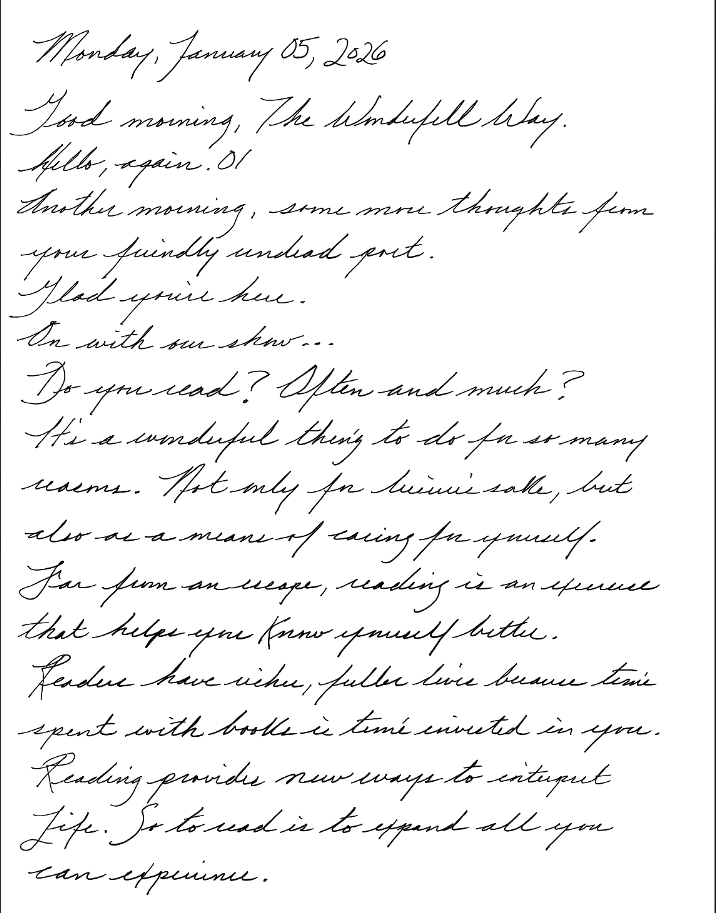 Monday, January 05, 2026
Good morning, The Wonderfell Way.
Hello, again. 01
Another morning, some more thoughts from
your friendly undead poet.
Glad you're here.
On with our show...
Do you read? Often and much?
It's a wonderful thing to do for so many
reasons. Not only for leisure sake, but
also as a means of caring for yourself.
Far from an escape, reading is an exercise
that helps you know yourself better.
Readers have richer, fuller lives because time
spent with books is time invested in you.
Reading provides new ways to interpret
Life. So to read is to expand all you
can experience.